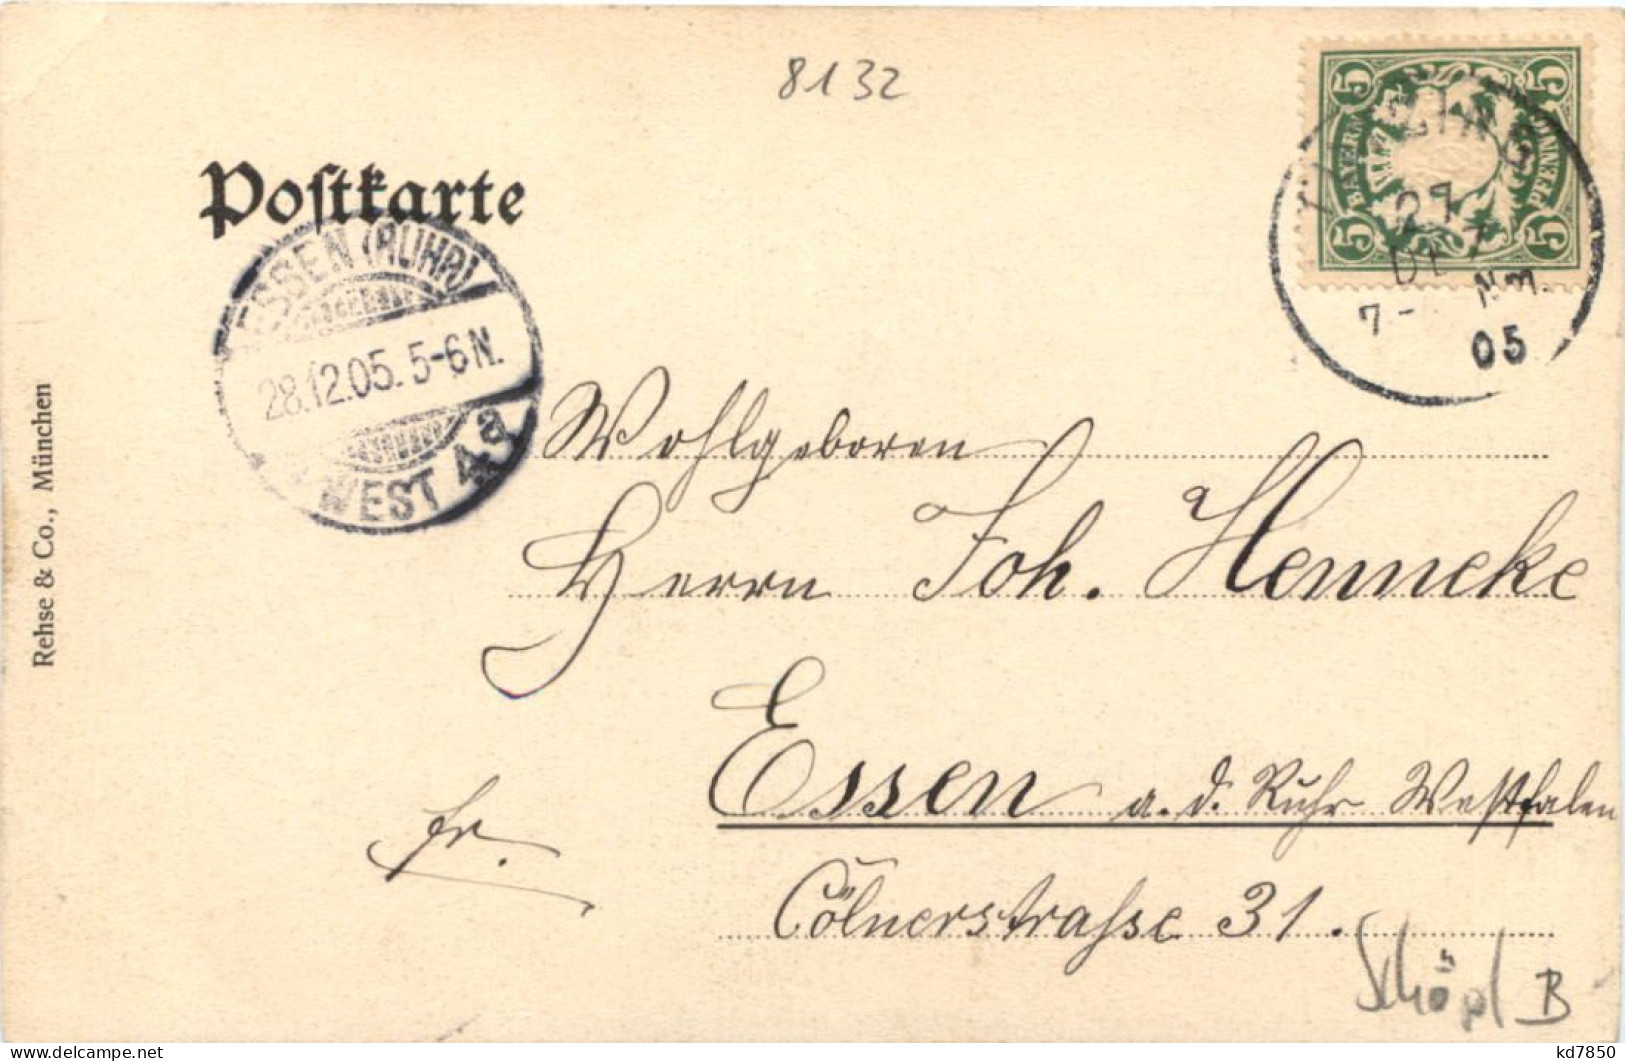 8132
5 5
BAYERN PFENNIG
5 5
27
DEZ
7- Nm.
05
Postkarte
ESSEN (RUHR)
28.12.05. 5-6 N.
WEST 4a
Rehse & Co., München
Wohlgeboren
Herrn Joh. Henneke
Essen a. d. Ruhr Westfalen
fr.
Cölnerstrasse 31.
Schöpl B
kd7850